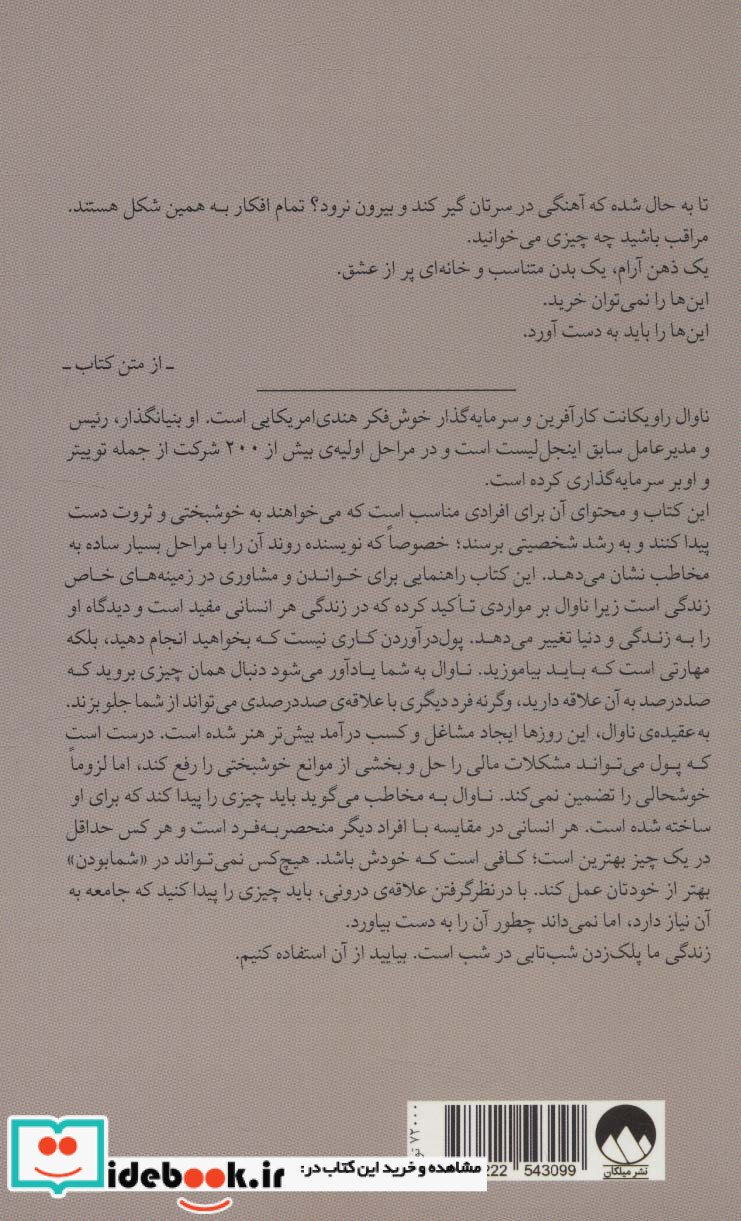 تا به حال شده که آهنگی در سرتان گیر کند و بیرون نرود؟ تمام افکار به همین شکل هستند.
مراقب باشید چه چیزی می‌خوانید.
یک ذهن آرام، یک بدن متناسب و خانه‌ای پر از عشق.
این‌ها را نمی‌توان خرید.
این‌ها را باید به دست آورد.
ـ از متن کتاب ـ
ناوال راویکانت کارآفرین و سرمایه‌گذار خوش‌فکر هندی‌امریکایی است. او بنیانگذار، رئیس
و مدیرعامل سابق اینجل‌لیست است و در مراحل اولیه‌ی بیش از ۲۰۰ شرکت از جمله توییتر
و اوبر سرمایه‌گذاری کرده است.
این کتاب و محتوای آن برای افرادی مناسب است که می‌خواهند به خوشبختی و ثروت دست
پیدا کنند و به رشد شخصیتی برسند؛ خصوصاً که نویسنده روند آن را با مراحل بسیار ساده به
مخاطب نشان می‌دهد. این کتاب راهنمایی برای خواندن و مشاوری در زمینه‌های خاص
زندگی است زیرا ناوال بر مواردی تأکید کرده که در زندگی هر انسانی مفید است و دیدگاه او
را به زندگی و دنیا تغییر می‌دهد. پول‌درآوردن کاری نیست که بخواهید انجام دهید، بلکه
مهارتی است که باید بیاموزید. ناوال به شما یادآور می‌شود دنبال همان چیزی بروید که
صددرصد به آن علاقه دارید، وگرنه فرد دیگری با علاقه‌ی صددرصدی می‌تواند از شما جلو بزند.
به عقیده‌ی ناوال، این روزها ایجاد مشاغل و کسب درآمد بیش‌تر هنر شده است. درست است
که پول می‌تواند مشکلات مالی را حل و بخشی از موانع خوشبختی را رفع کند، اما لزوماً
خوشحالی را تضمین نمی‌کند. ناوال به مخاطب می‌گوید باید چیزی را پیدا کند که برای او
ساخته شده است. هر انسانی در مقایسه با افراد دیگر منحصربه‌فرد است و هر کس حداقل
در یک چیز بهترین است؛ کافی است که خودش باشد. هیچ‌کس نمی‌تواند در «شمابودن»
بهتر از خودتان عمل کند. با درنظرگرفتن علاقه‌ی درونی، باید چیزی را پیدا کنید که جامعه به
آن نیاز دارد، اما نمی‌داند چطور آن را به دست بیاورد.
زندگی ما پلک‌زدن شب‌تابی در شب است. بیایید از آن استفاده کنیم.
۷۲۰۰۰
222 543099
نشر میلکان
مشاهده و خرید این کتاب در:
idebook.ir